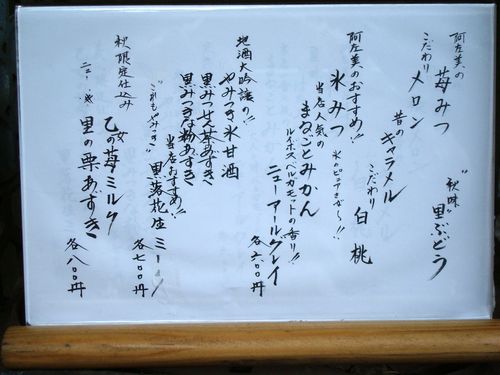 阿左美の
苺みつ
"秋味"
里ぶどう
こだわり
メロン
昔の
キャラメル
こだわり
白桃
阿左美のおすすめ!!
氷みつ
氷のピュアな〜!!
当店人気の
まるごとみかん
ルイボスベルガモットの香り!!
ニューアールグレイ
各六〇〇円
地酒大吟醸の!!
やみつき氷甘酒
黒みつ抹茶あずき
黒みつきな粉あずき
当店おすすめ!!
これもやみつき
黒落花生ミルク
各七〇〇円
秋限定仕込み
乙女苺ミルク
里の栗あずき
各八〇〇円